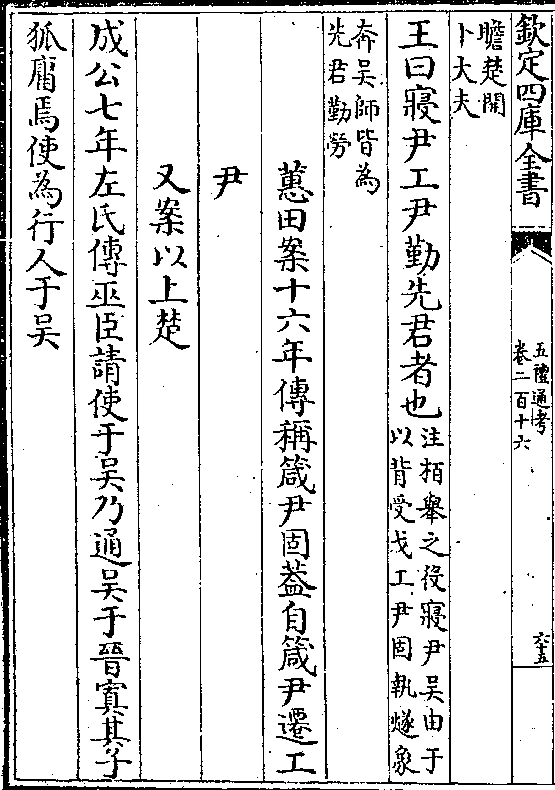 欽定四庫全書
五禮通考
卷二百十六
六十五
瞻楚開
卜大夫
王曰寢尹工尹勤先君者也
注栢舉之役寢尹吳由于
以背受戈工尹固執燧象
奔吳師皆為
先君勤勞
蕙田案十六年傳稱箴尹固葢自箴尹遷工
尹
又案以上楚
成公七年左氏傳巫臣請使于吳乃通吳于晉寘其子
狐庸焉使為行人于吳